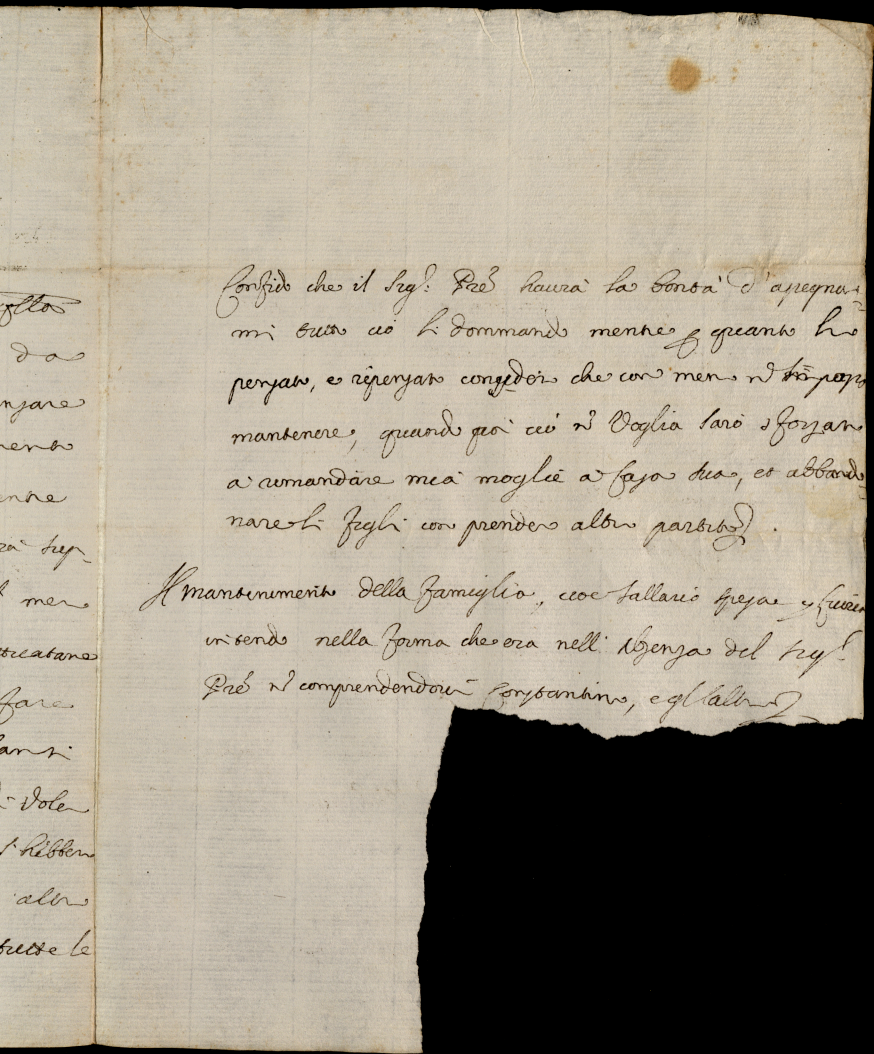 da
mente
mer
fare
Voler
altro
tutte le
Confido che il Sig.r Pre haurà la bontà d'asegnar=
mi tutto ciò li dommando mentre p quanto hò
pensato, e ripensato conosco che con men nõ mi posso
mantenere, quando poi ciò nõ Voglia sarò sforzato
a rimandare mia moglie a Casa sua, et abbando=
nare li figli con prender altro partito.
Il mantenimento della famiglia, cioè sallario spesa
intendo nella forma che era nell' absenza del Sig.r
Pre nõ comprendendovi Constantino, e gl'altri